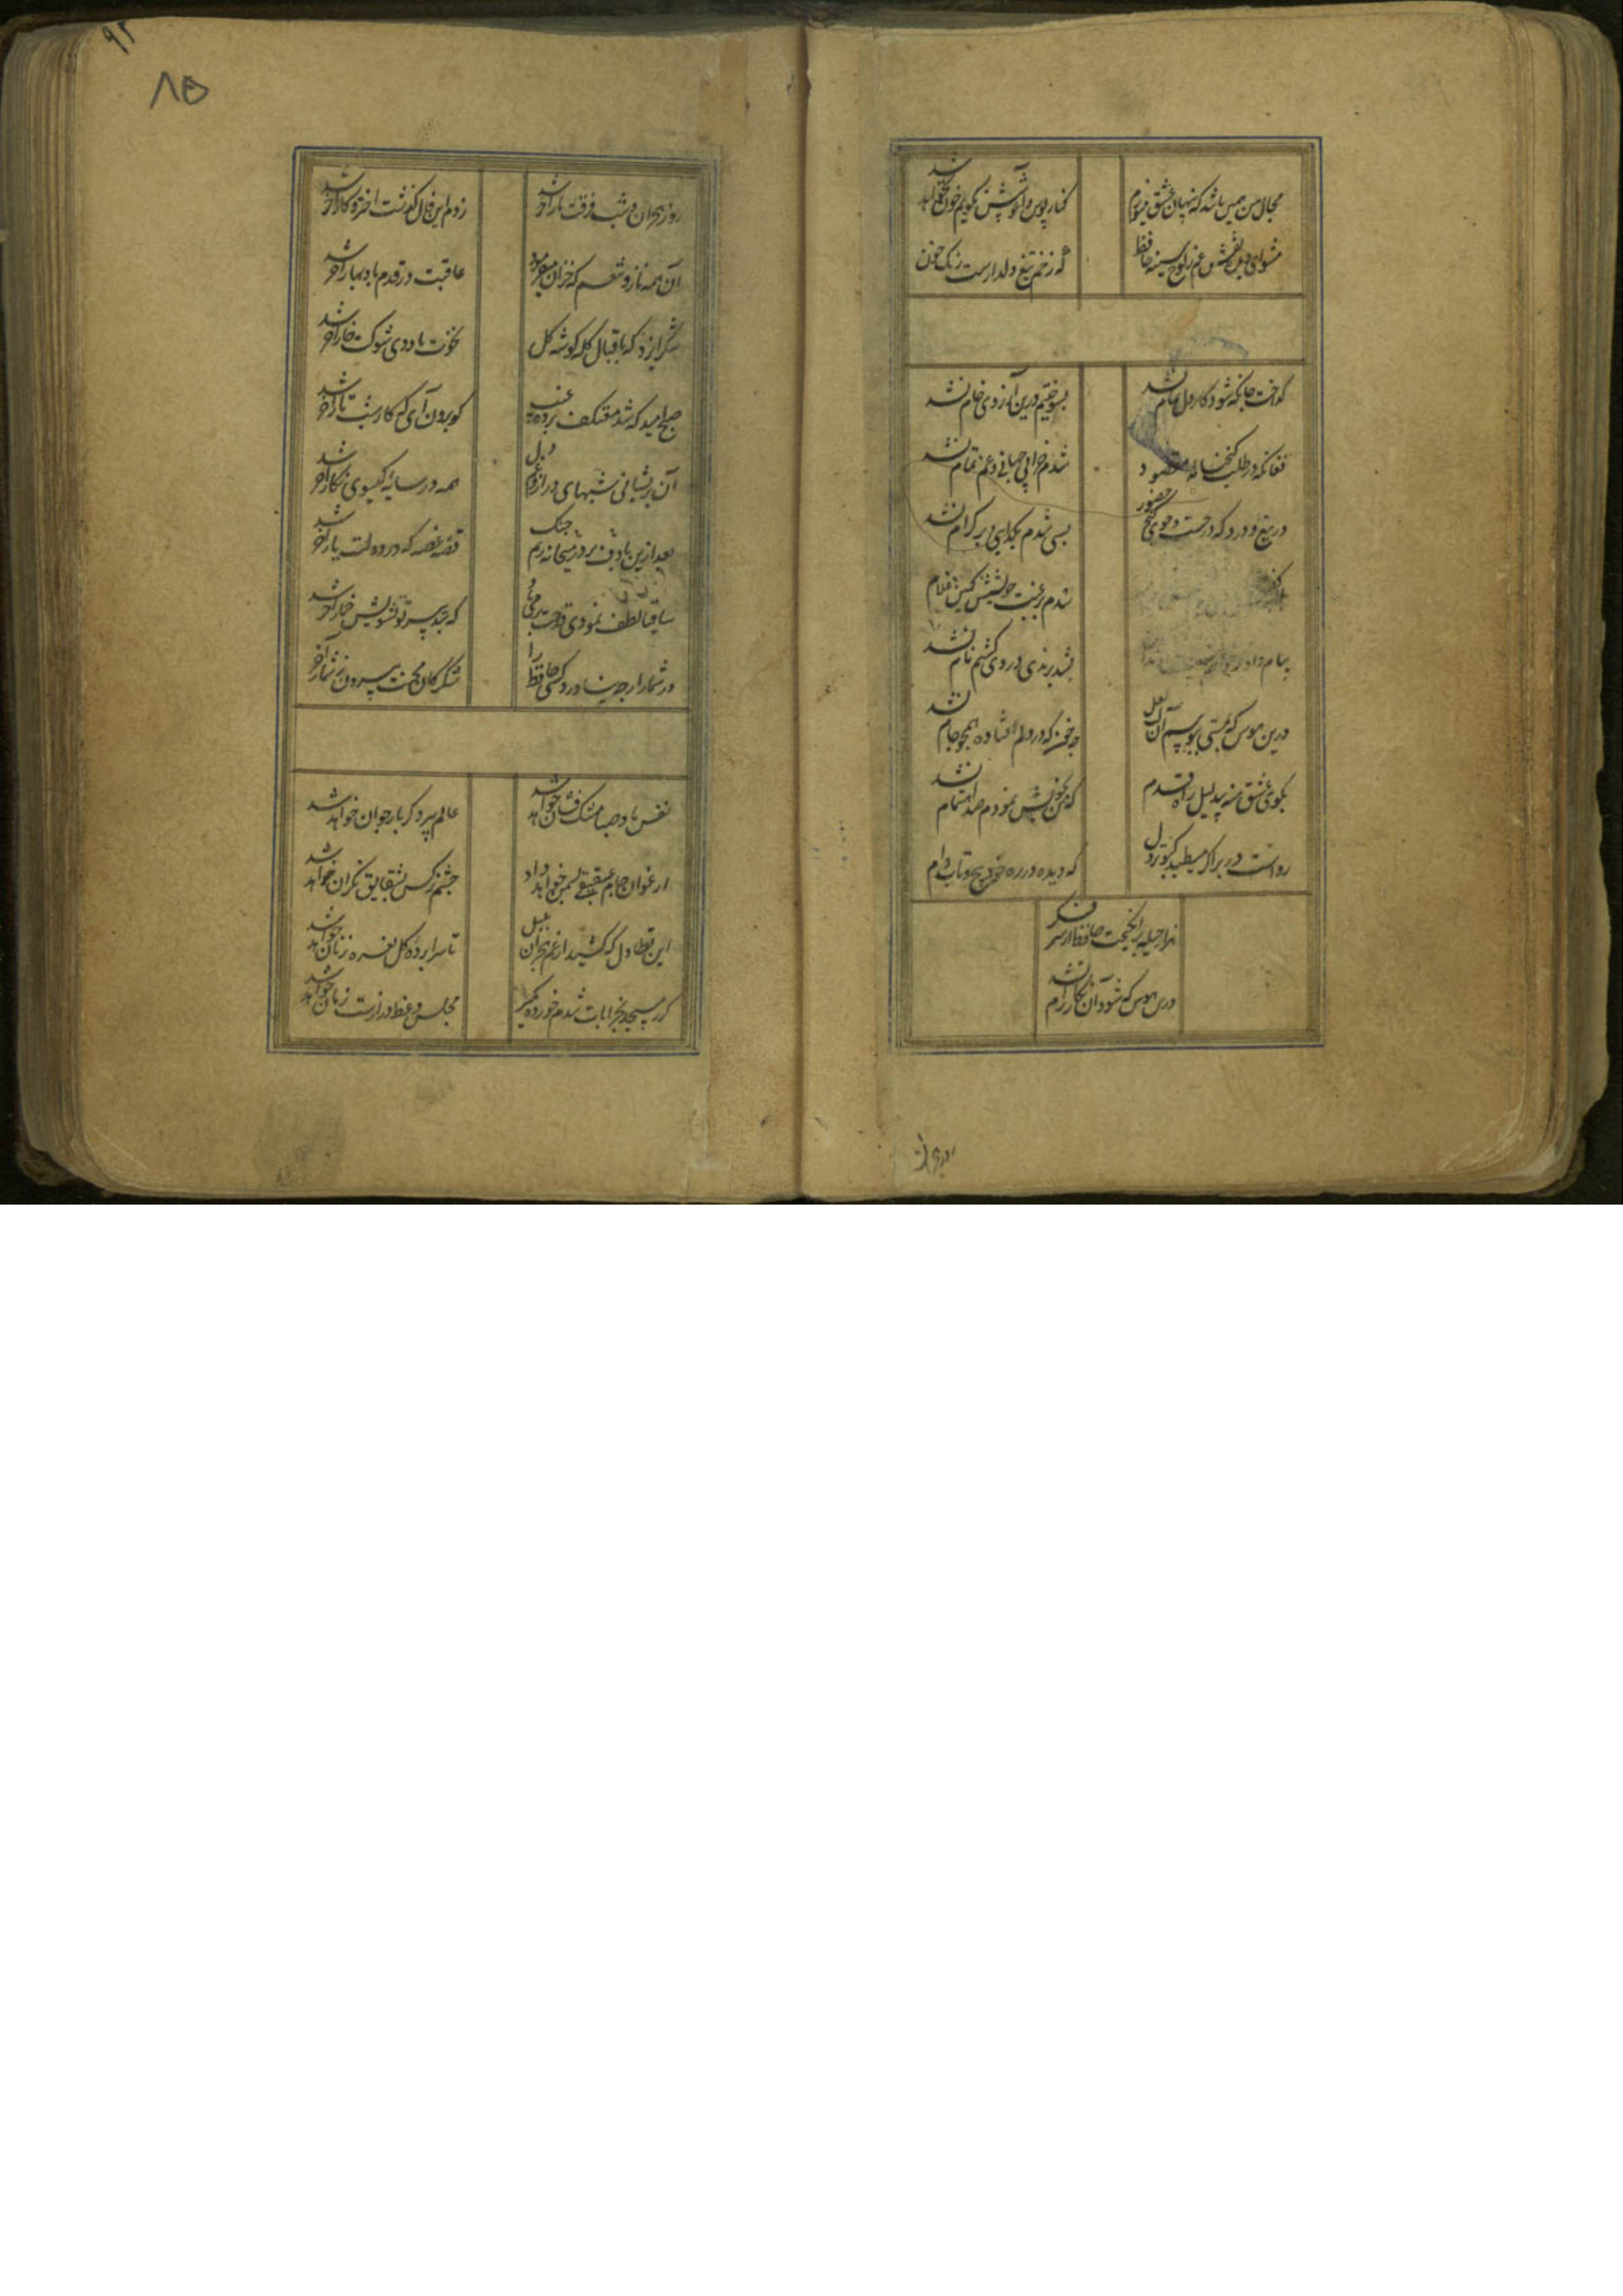 مجال من همین باشد که پنهان عشق میورزم
کنار و بوس و آغوشش نگویم چون نخواهد شد
مشوی ای دل نقش غم ز لوح سینه حافظ
که زخم تیغ دلدارست رنگ خون
گداخت جان که شود کار دل تمام نشد
بسوختیم درین آرزوی خام نشد
فغان که در طلب گنجنامه مقصود
شدم خراب جهانی و غم تمام نشد
دریغ و درد که در جست و جوی گنج حضور
بسی شدم بگدایی بر کرام نشد
شدم برغبت خویشش کمین غلام
پیام داد که
بشد برندی و دردی کشیم نام نشد
درین هوس که بمستی ببوسم آن لعل
چه خون که در دلم افتاده همچو جام نشد
بکوی عشق منه بی دلیل راه قدم
که من بخویش نمودم صد اهتمام نشد
رواست در بر اگر میطپد کبوتر دل
که دیده در ره خود پیچ و تاب دام
هزار حیله برانگیخت حافظ از سر فکر
درین هوس که شود آن نگار رام نشد
۸۵
۹۲
روز هجران و شب فرقت یار آخر شد
زدم این فال گذشت اختر و کار آخر شد
آن همه ناز و تنعم که خزان میفرمود
عاقبت در قدم باد بهار آخر شد
شکر ایزد که باقبال کله گوشه گل
نخوت باد دی و شوکت خار آخر شد
صبح امید که شد معتکف پرده غیب
گو برون آی که کار شب تار آخر شد
آن پریشانی شبهای دراز و غم دل
همه در سایه گیسوی نگار آخر شد
بعد ازین با دف بر در میخانه رم چنگ
قصه غصه که در دولت یار آخر شد
ساقیا لطف نمودی قدحت پر می باد
که بتدبیر تو تشویش خمار آخر شد
در شمار ارچه نیاورد کسی حافظ را
شکر کان محنت بیرون ز شمار آخر
نفس باد صبا مشک فشان خواهد شد
عالم پیر دگر بار جوان خواهد شد
ارغوان جام عقیقی بسمن خواهد داد
چشم نرگس بشقایق نگران خواهد شد
این تطاول که کشید از غم هجران بلبل
تا سراپرده گل نعره زنان خواهد شد
گر ز مسجد بخرابات شدم خورده مگیر
مجلس وعظ درازست زمان خواهد شد